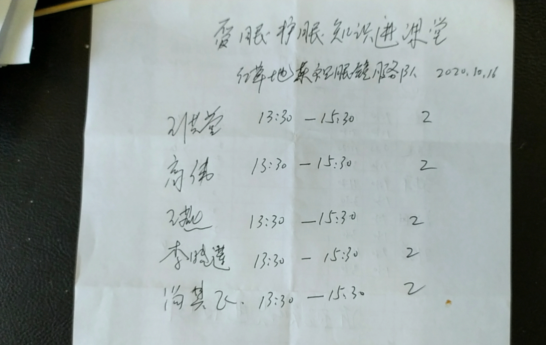 爱眼护眼知识进课堂
红草地 眼镜服务队 2020.10.16
王洪莹 13:30 — 15:30 2
高伟 13:30 — 15:30 2
王艳 13:30 — 15:30 2
李晓莲 13:30 — 15:30 2
13:30 — 15:30 2